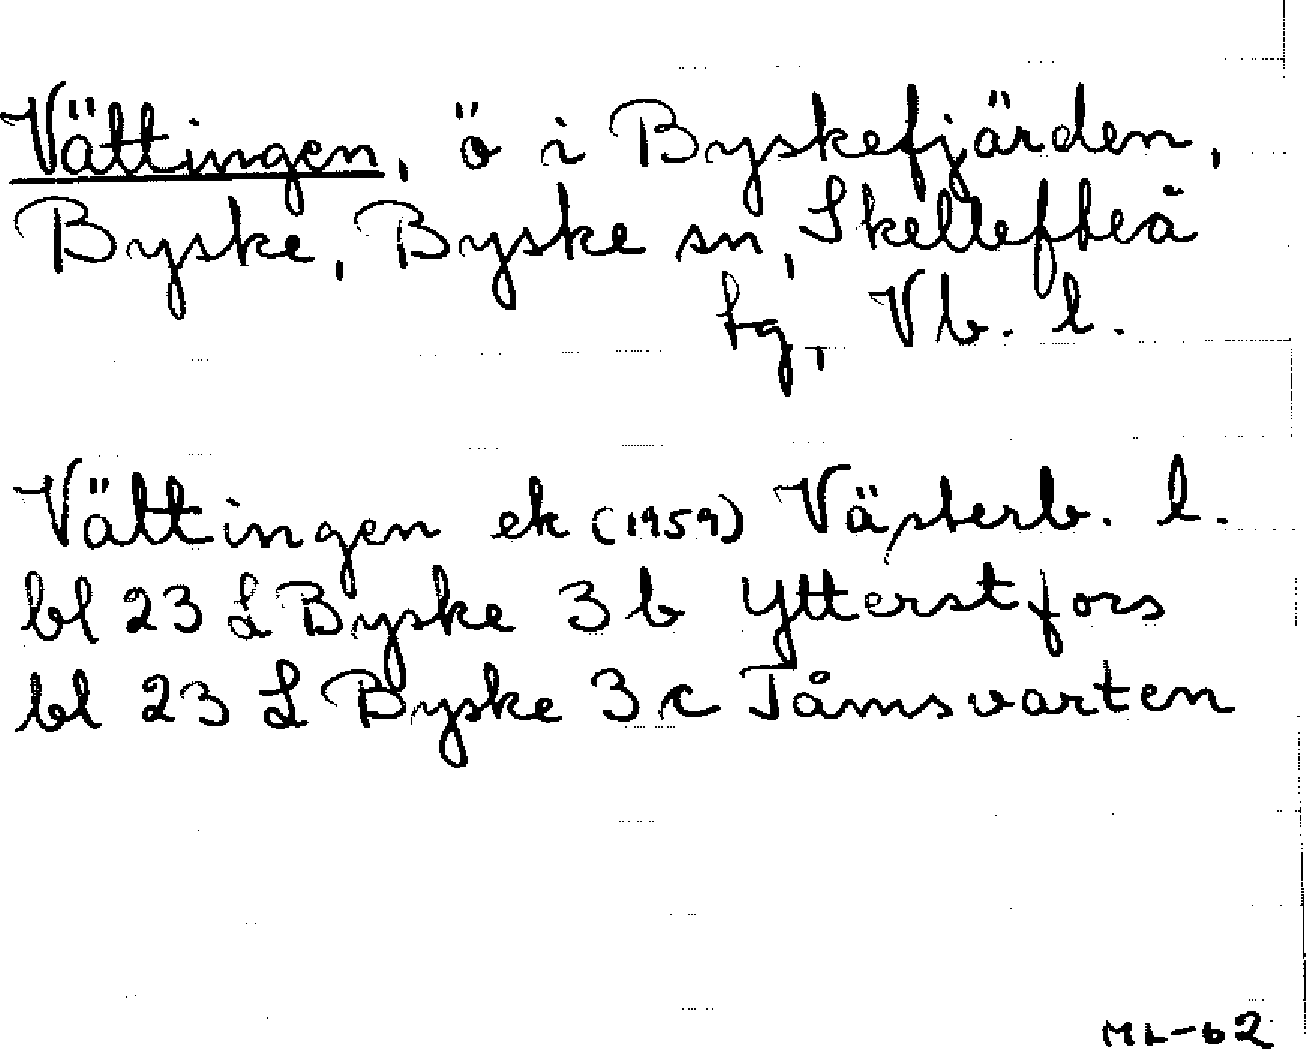 Vättingen, ö i Byskefjärden,
Byske, Byske sn, Skellefteå
tg, Vb. l.
Vättingen ek (1959) Västerb. l.
bl 23 L Byske 3 b Ytterstfors
bl 23 L Byske 3 c Tåmsvarten
ML-62